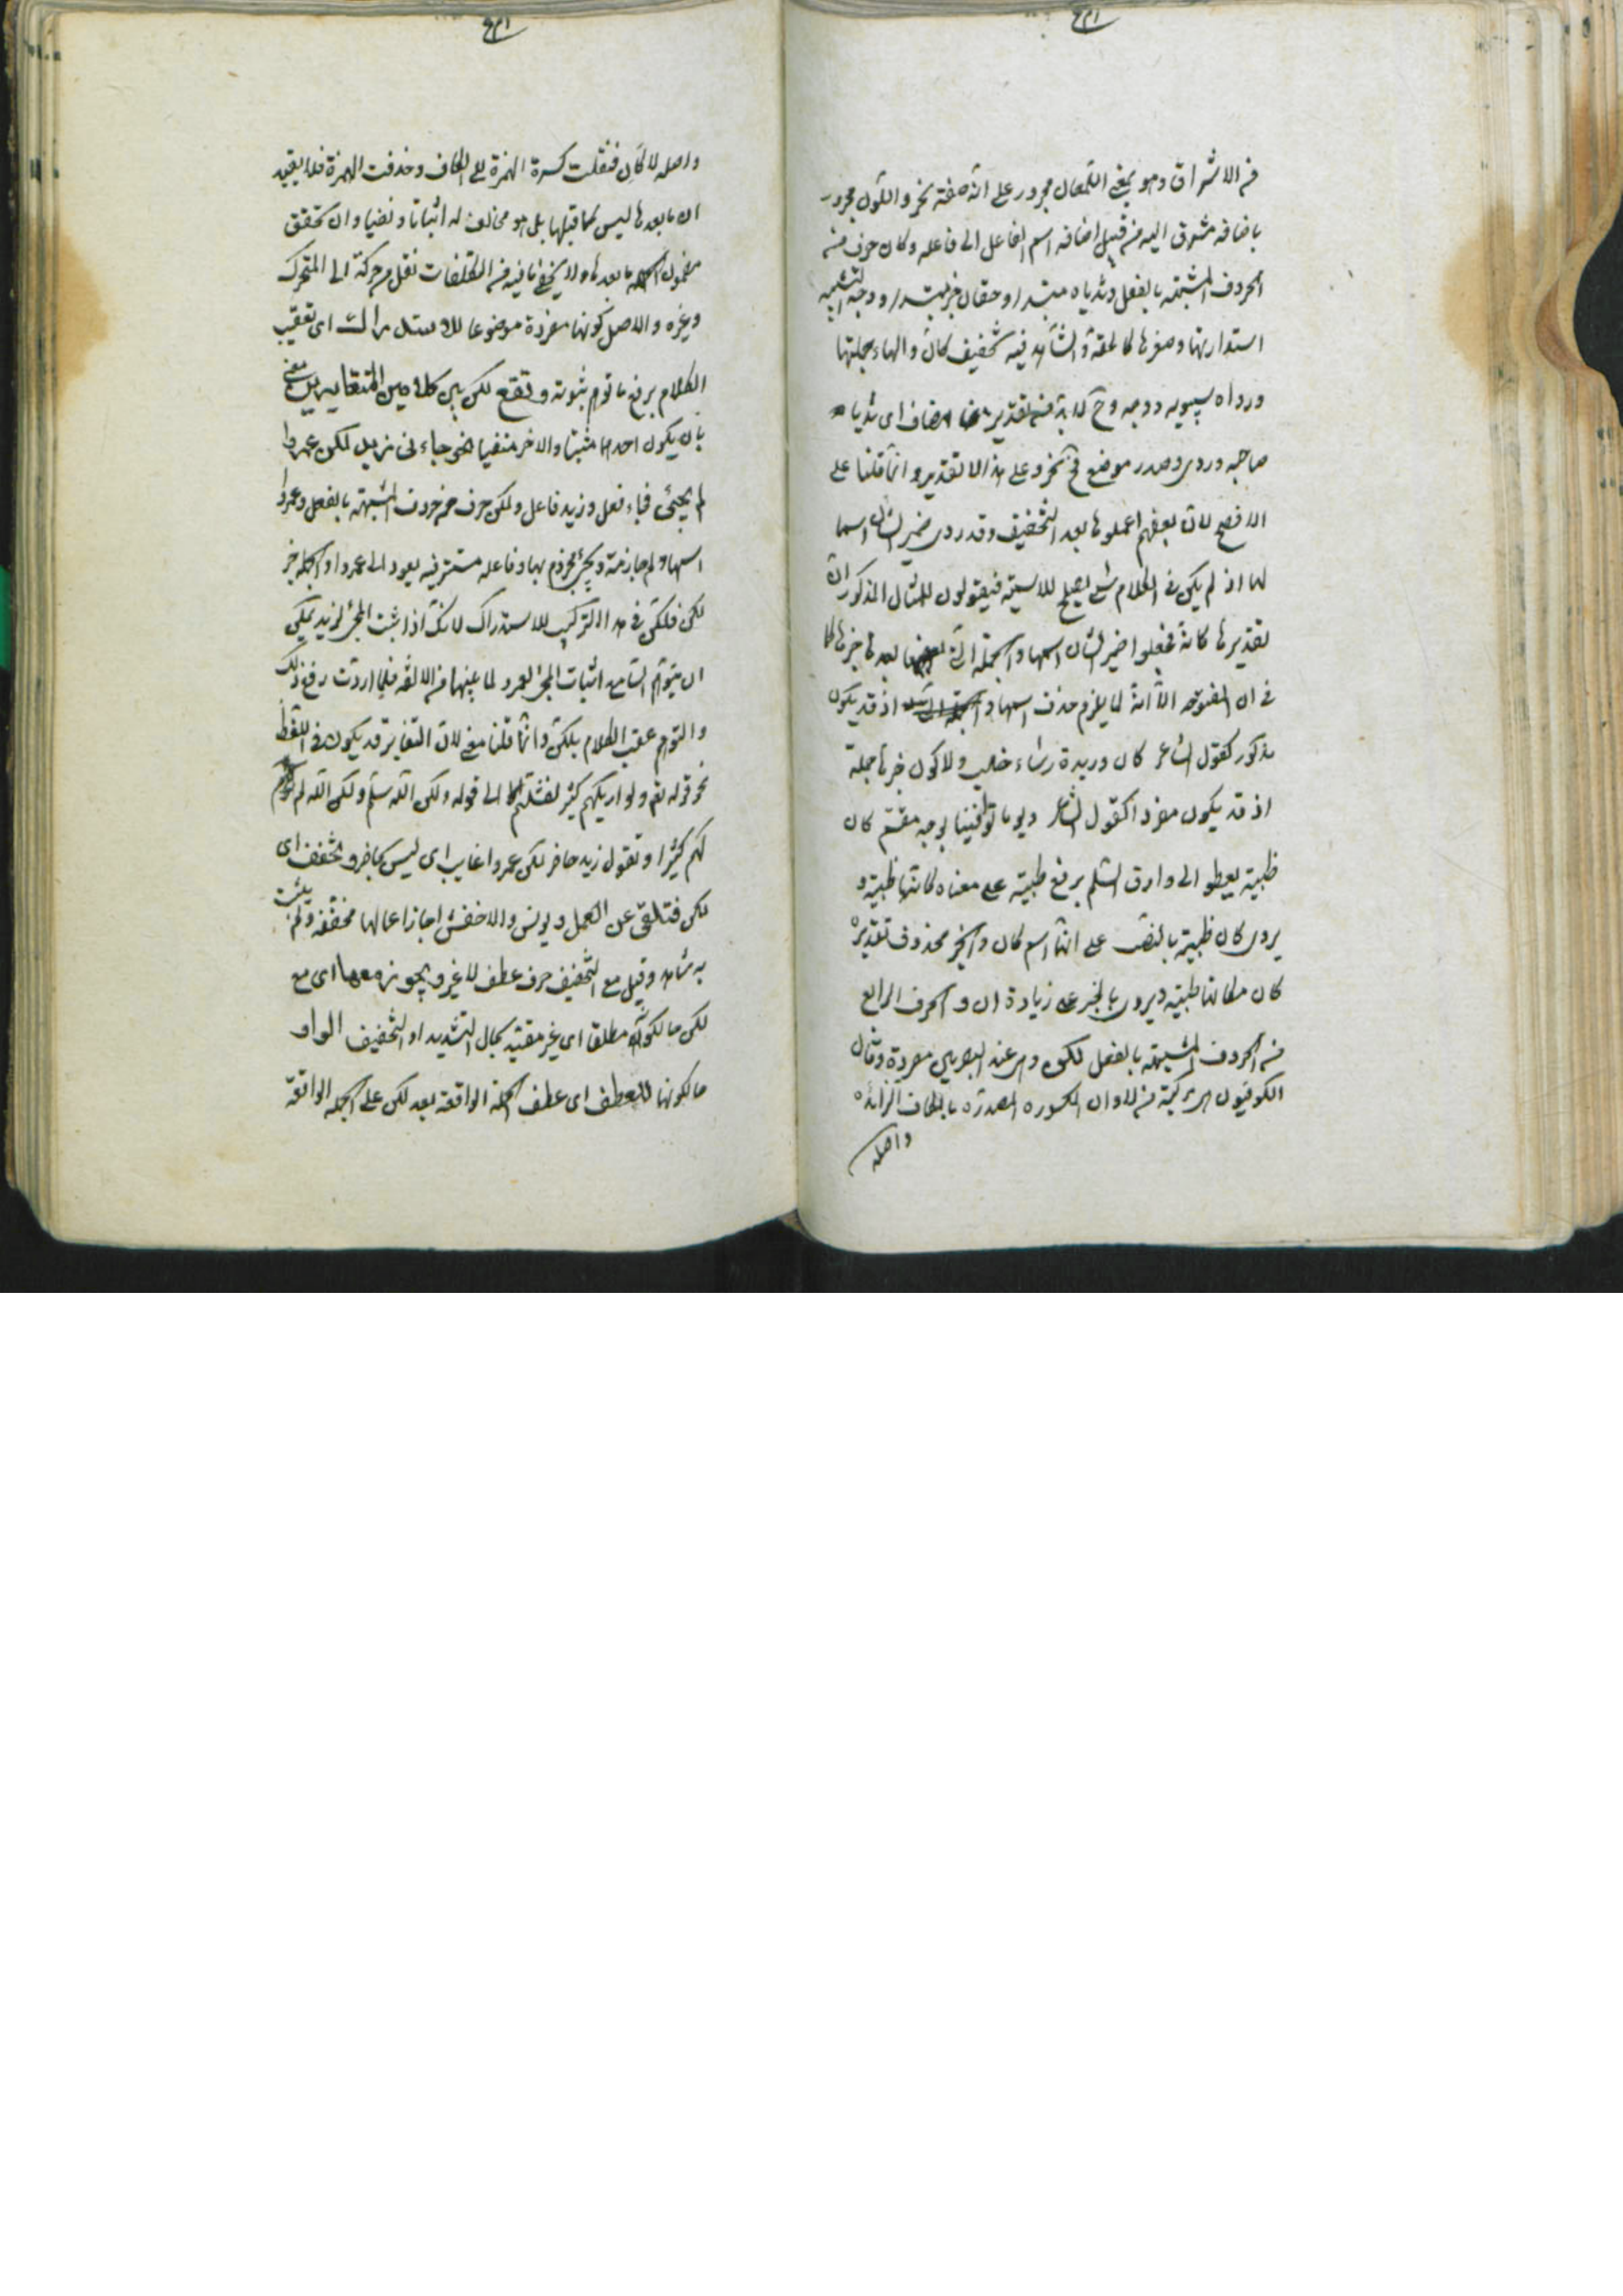 من الاشراق وهو بمعنى اللمعان مجرور على انه صفة نحر واللون مجرور
باضافة مشرق اليه من قبيل اضافة اسم الفاعل الى فاعله وكان حرف من
الحروف المشبهة بالفعل وثدياه مبتدا وحقان خبر مبتدا ووجه التشبيه
استدارتهما وصغرها كالحقة والشاهد فيه تخفيف كان والهاء جملتها
ورواه سيبويه ووجه وح لا بد من تقدير مضاف اى ثديا
صاحبه وروى وصدر موضع ونحر وعلى هذا لا تقدير وانما قلنا على
الافصح لان بعضهم اعملوها بعد التخفيف وقد روى ضمير الشان اسما
لها اذ لم يكن في الكلام شئ يصلح للاسمية فيقولون للمثال المذكور ان
تقديرها كانه فجعلوا ضمير الشان اسمها والجملة التى بعدها خبرها كما
في ان المفتوحه الا انه لا يلزم حذف اسمها اذ قد يكون
مذكور كقول الشاعر كان وريديه رشاء خلب ولا كون خبرها جملة
اذ قد يكون مفردا كقول الشاعر ويوما توافينا بوجه مقسم كان
ظبية يعطو الى وارق السلم برفع ظبية على معناه كانها ظبية و
يروى كان ظبية بالنصب على انها اسم كان والخبر محذوف تقديره
كان مكانها ظبية ويروى بالجر على زيادة ان و الحرف الرابع
من الحروف المشبهة بالفعل لكن وهى عند البصريين مفردة وقال
الكوفيون هى مركبة من لا وان المكسوره المصدرة بالكاف الزائده
واصله
واصله لا كان فنقلت كسرة الهمزة الى الكاف وحذفت الهمزة فلا يفيد
ان ما بعدها ليس كما قبلها بل هو مخالف له اثباتا ونفيا وان تحقق
مضمون ما بعدها ولا يخفى ما فيه من التكلفات نقل حركة الى المتحرك
وغيره والاصل كونها مفردة موضوعا للاستدراك اى تعقيب
الكلام برفع ما توهم ثبوته وتقع لكن بين كلامين المتغايرين معنى
بان يكون احدهما مثبتا والاخر منفيا نحو جاءنى زيد لكن عمروا
لم يجئ فجاء فعل وزيد فاعل ولكن حرف من حروف المشبهة بالفعل وعمروا
اسمها ولم جازمة ويجئ مجزوم بها وفاعله مستتر فيه يعود الى عمروا والجملة خبر
لكن فلكن في هذا التركيب للاستدراك لانك اذا اثبت المجئ لزيد يمكن
ان يتوهم السامع اثبات المجئ لعمرو لما بينهما من الالفة فلما اردت رفع ذلك
والتوهم عقبت الكلام بلكن وانما قلنا معنى لان التغاير قد يكون في اللفظ
نحو قوله تعالى ولو اريكهم كثيرا لفشلتم الى قوله ولكن الله سلم ولكن الله لم يريكهم
لهم كثيرا وتقول زيد حاضر لكن عمروا غايب اى ليس بحاضر وتخفف اى
لكن فتلغى عن العمل ويونس والاخفش اجازا اعمالها مخففة ولم يثبت
به شاهد وقيل مع التخفيف حرف عطف لا غير ويجوز معها اى مع
لكن حال كونه مطلقا اى غير مقيد بحال التشديد او التخفيف الواو
حال كونها للعطف اى عطف الجملة الواقعة بعد لكن على الجملة الواقعة